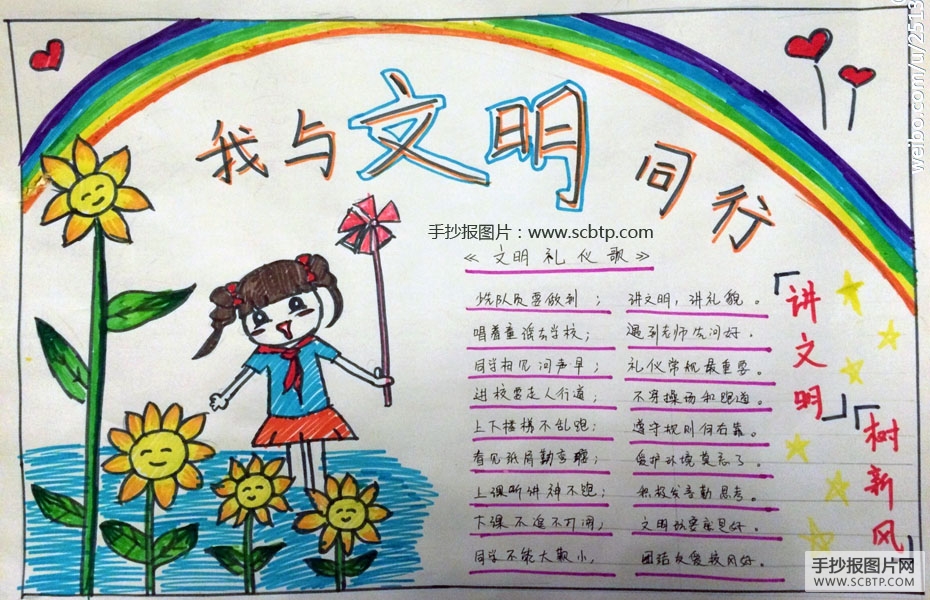 我与文明同行
手抄报图片：www.scbtp.com
《文明礼仪歌》
少先队员要做到； 讲文明，讲礼貌。
唱着童谣去学校； 遇到老师先问好。
同学相见问声早； 礼仪常规最重要。
进校要走人行道； 不穿操场和跑道。
上下楼梯不乱跑； 遵守规则何右靠。
看见纸屑勤弯腰； 爱护环境莫忘了。
上课听讲神不跑； 积极发言勤思考。
下课不追不打闹； 文明
同学不能大欺小， 团结友爱校风好。
「讲文明」
「树新风」
weibo.com/u/2513
手抄报图片网
WWW.SCBTP.COM